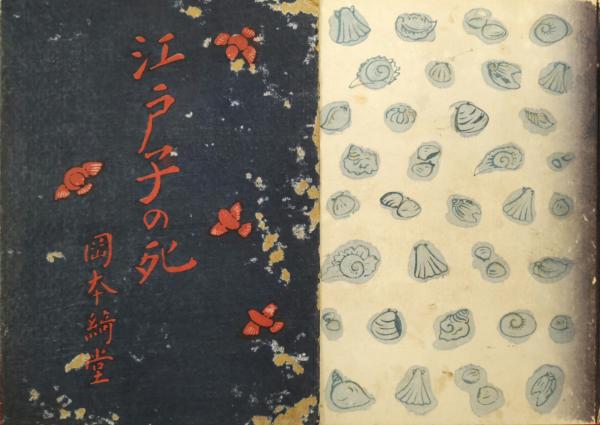 江戸子の死
岡本綺堂